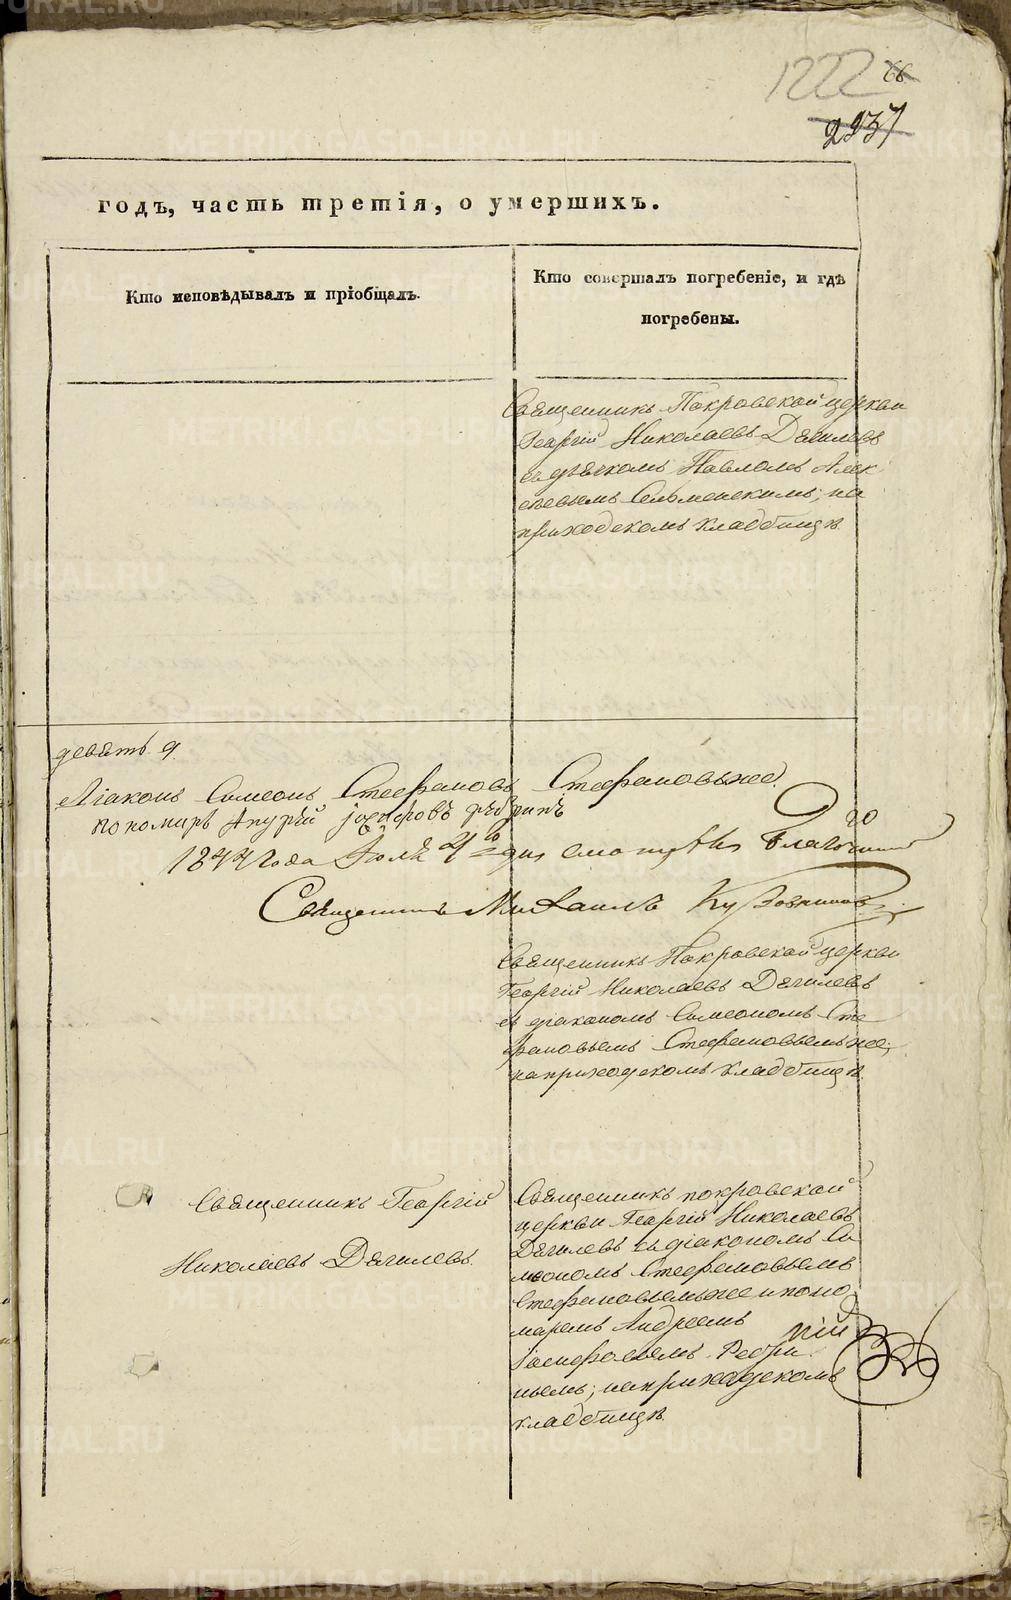 1222 66
2237
годъ, часть третія, о умершихъ.
Кто исповѣдывалъ и пріобщалъ.
Кто совершалъ погребеніе, и гдѣ
погребены.
Священникъ Покровской церкви
Георгій Николаевъ Дягилевъ
съ дьячкомъ Павломъ Алек
сѣевымъ Сельменскимъ, на
приходскомъ кладбищѣ.
девять 9.
Діаконъ Симеонъ Стефановъ Стефановыхъ
пономарь Андрей Іосифовъ
1844 года Іюля дня смотрѣлъ Благочинный
Священникъ Михаилъ
Священникъ Покровской церкви
Георгій Николаевъ Дягилевъ
съ діакономъ Симеономъ Сте
фановымъ
на приходскомъ кладбищѣ.
Священникъ Георгій
Николаевъ Дягилевъ.
Священникъ покровской
церкви Георгій Николаевъ
Дягилевъ съ діакономъ Си
меономъ Стефановымъ
и поно
маремъ Андреемъ
Іосифовымъ Ребри
нымъ, на приходскомъ
кладбищѣ.
METRIKI.GASO-URAL.RU